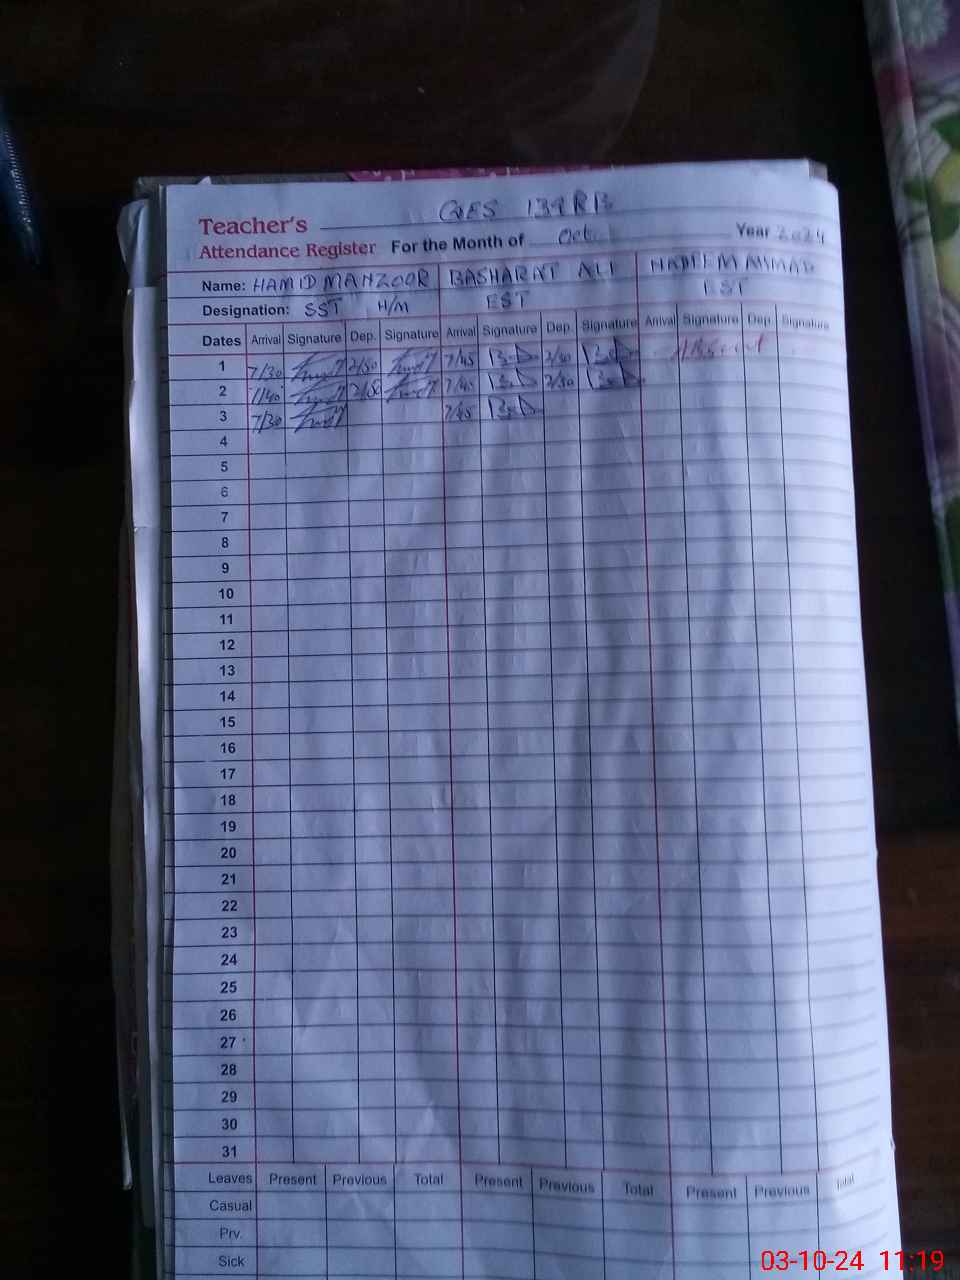 Teacher's GES 139 RB
Attendance Register For the Month of Oct. Year 2024
Name: HAMID MANZOOR BASHARAT ALI NAEEM AHMAD
Designation: SST H/M EST EST
Dates Arrival Signature Dep. Signature Arrival Signature Dep. Signature Arrival Signature Dep. Signature
1 7/30 2/50 7/45 2/50 Absent
2 7/40 2/50 7/45 2/50
3 7/30 7/45
4
5
6
7
8
9
10
11
12
13
14
15
16
17
18
19
20
21
22
23
24
25
26
27
28
29
30
31
Leaves Present Previous Total Present Previous Total Present Previous Total
Casual
Prv.
Sick
03-10-24 11:19